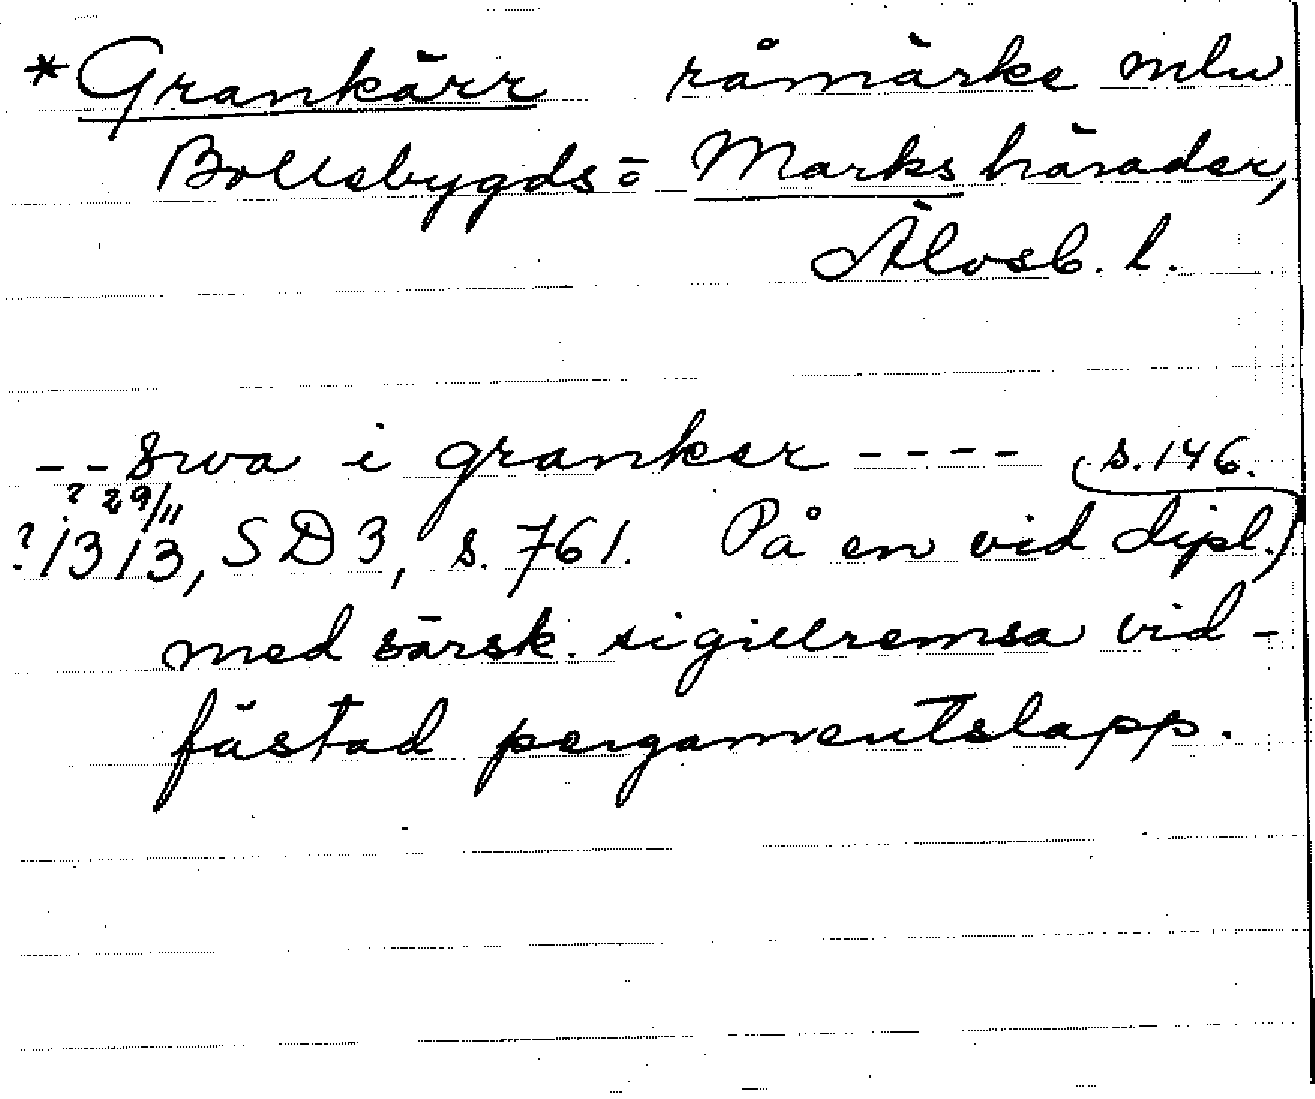 *Grankärr råmärke mlw
Bollebygds= Marks härader,
Älvsb. l.
--Swa i granker---- (s.146.
? 29/11
?1313, SD3, s.761. På en vid dipl.)
med särsk. sigillremsa vid-
fästad pergamentslapp.